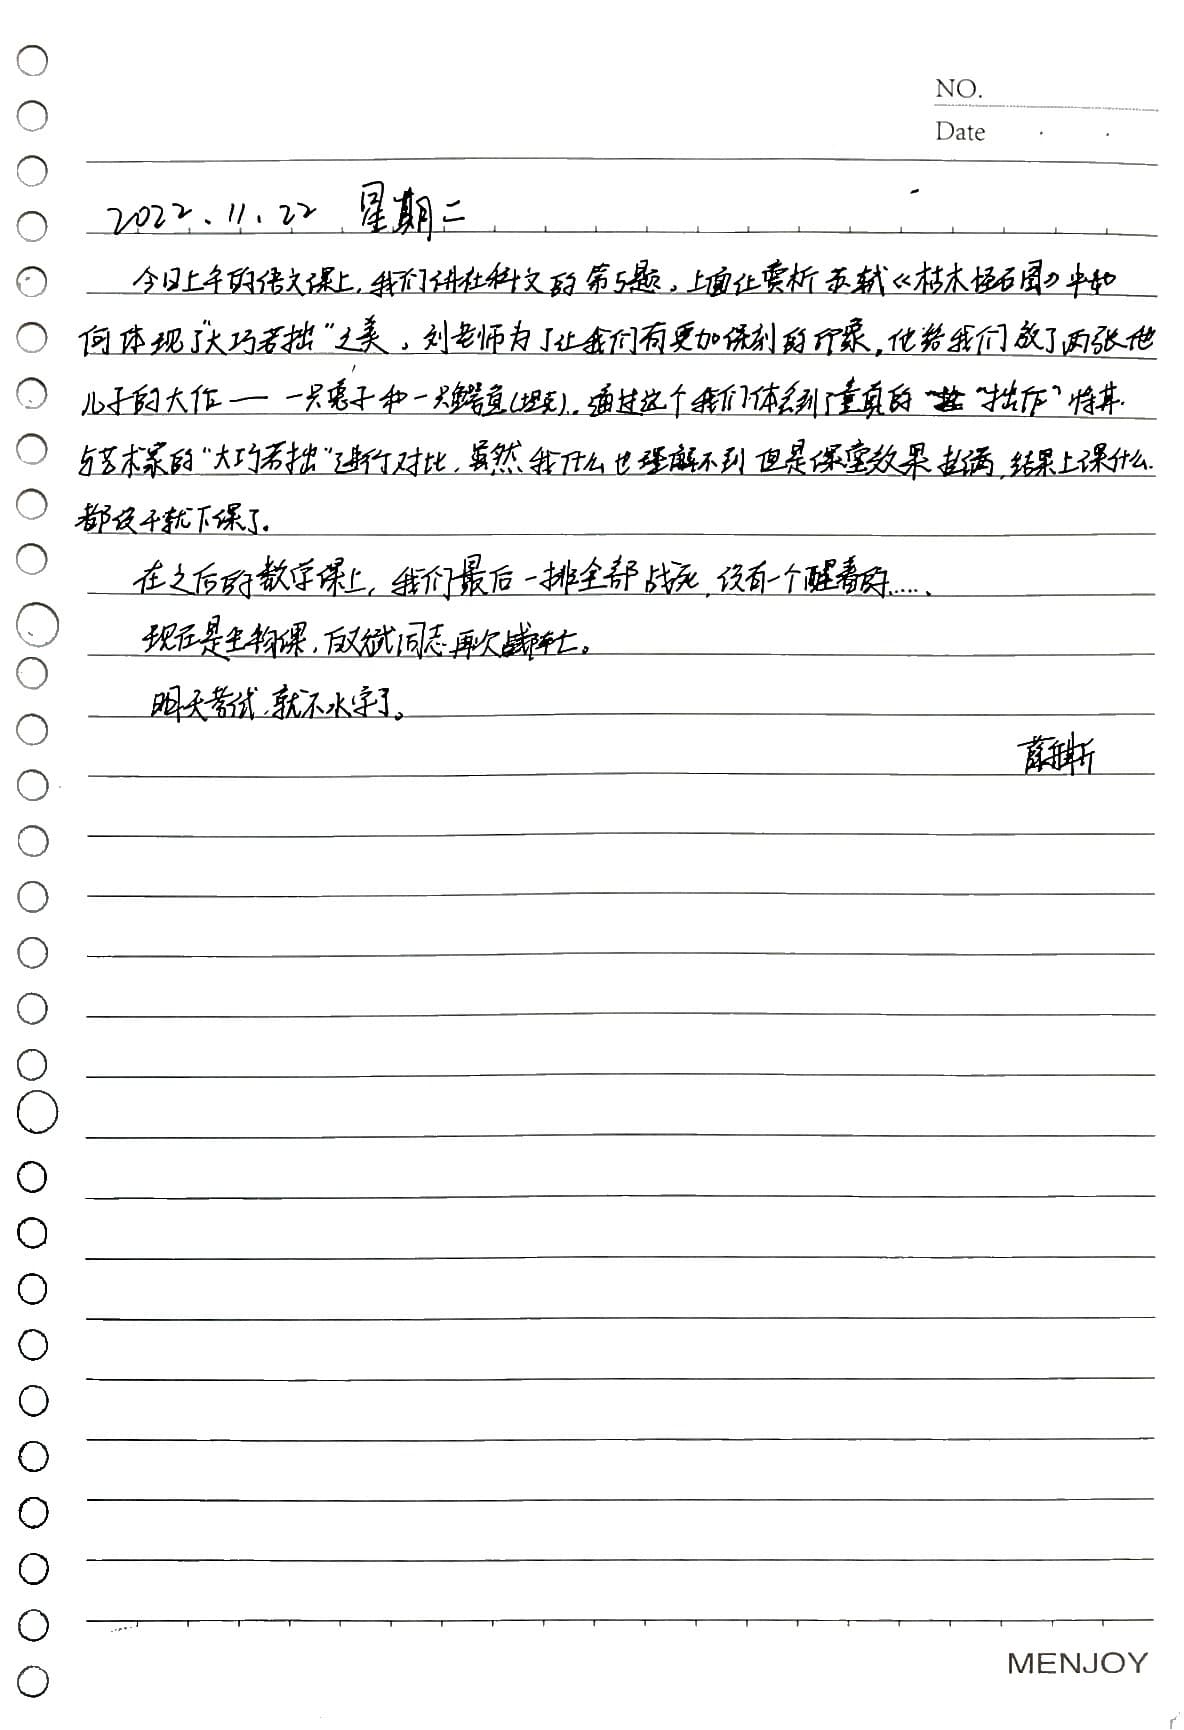 NO.
Date
2022.11.22 星期二
今日上午的语文课上,我们讲社科文的第5题。上面让赏析苏轼《枯木怪石图》中如
何体现了“大巧若拙”之美。刘老师为了让我们有更加深刻的印象,他给我们放了两张他
儿子的大作——一只兔子和一只鳄鱼(坦克)。通过这个我们体会到了童真的“拙作”将其
与艺术家的“大巧若拙”进行对比,虽然我什么也理解不到但是课堂效果拉满,结果上课什么
都没干就下课了。
在之后的数学课上,我们最后一排全部战死,没有一个醒着的……
现在是生物课,同志再次战阵亡。
明天考试,就不水字了。
MENJOY